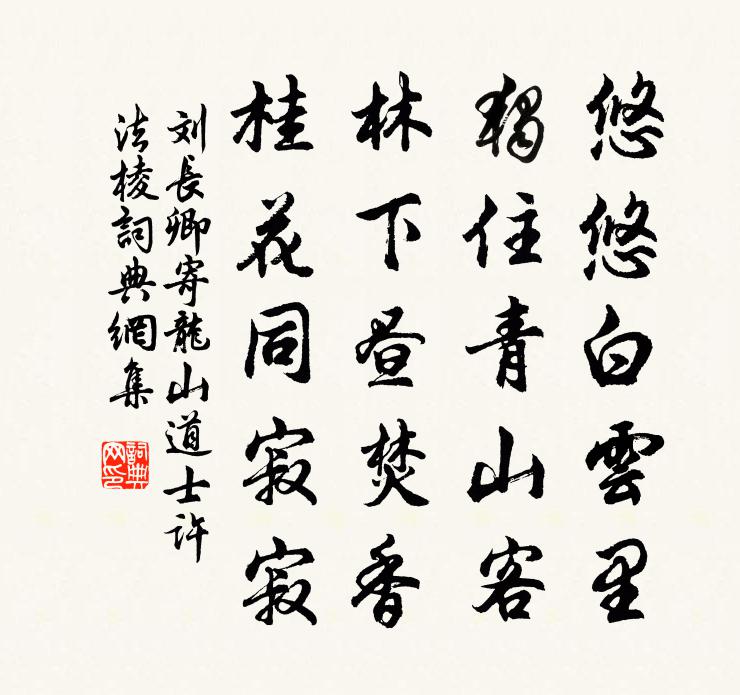 悠悠白雲里
獨住青山客
林下昼焚香
桂花同寂寂
刘長卿寄龍山道士許
法棱詞典網集
詞典网印